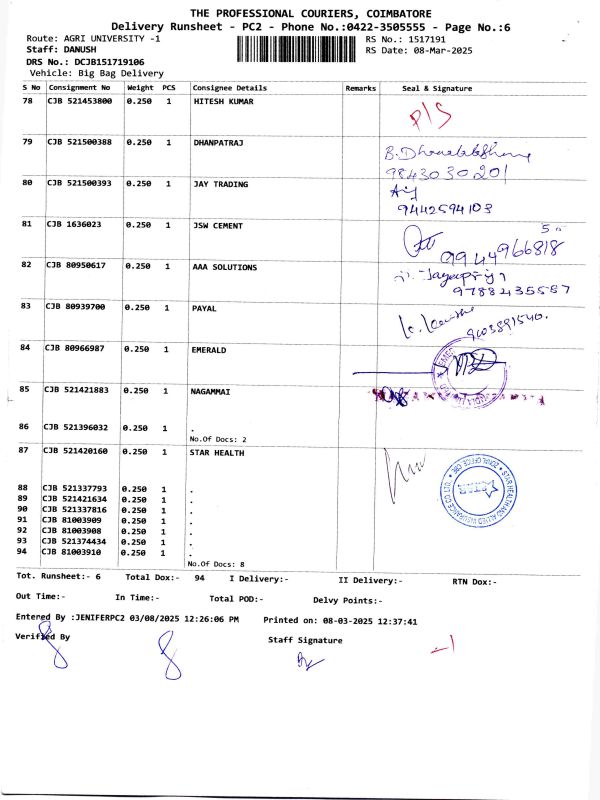 THE PROFESSIONAL COURIERS, COIMBATORE
Delivery Runsheet - PC2 - Phone No.:0422-3505555 - Page No.:6
Route: AGRI UNIVERSITY -1 RS No.: 1517191
Staff: DANUSH RS Date: 08-Mar-2025
DRS No.: DCJB151719106
Vehicle: Big Bag Delivery
S No Consignment No Weight PCS Consignee Details Remarks Seal & Signature
78 CJB 521453800 0.250 1 HITESH KUMAR P/S
79 CJB 521500388 0.250 1 DHANPATRAJ
9843030201
80 CJB 521500393 0.250 1 JAY TRADING
9442594103
81 CJB 1636023 0.250 1 JSW CEMENT
9944966818
82 CJB 80950617 0.250 1 AAA SOLUTIONS
97882435587
83 CJB 80939700 0.250 1 PAYAL
9003891540.
84 CJB 80966987 0.250 1 EMERALD
85 CJB 521421883 0.250 1 NAGAMMAI
86 CJB 521396032 0.250 1 .
No.Of Docs: 2
87 CJB 521420160 0.250 1 STAR HEALTH
STAR HEALTH AND ALLIED INSURANCE CO. LTD.
ZONAL OFFICE CBE
STAR
88 CJB 521337793 0.250 1 .
89 CJB 521421634 0.250 1 .
90 CJB 521337816 0.250 1 .
91 CJB 81003909 0.250 1 .
92 CJB 81003908 0.250 1 .
93 CJB 521374434 0.250 1 .
94 CJB 81003910 0.250 1 .
No.Of Docs: 8
Tot. Runsheet:- 6 Total Dox:- 94 I Delivery:- II Delivery:- RTN Dox:-
Out Time:- In Time:- Total POD:- Delvy Points:-
Entered By :JENIFERPC2 03/08/2025 12:26:06 PM Printed on: 08-03-2025 12:37:41
Verified By Staff Signature